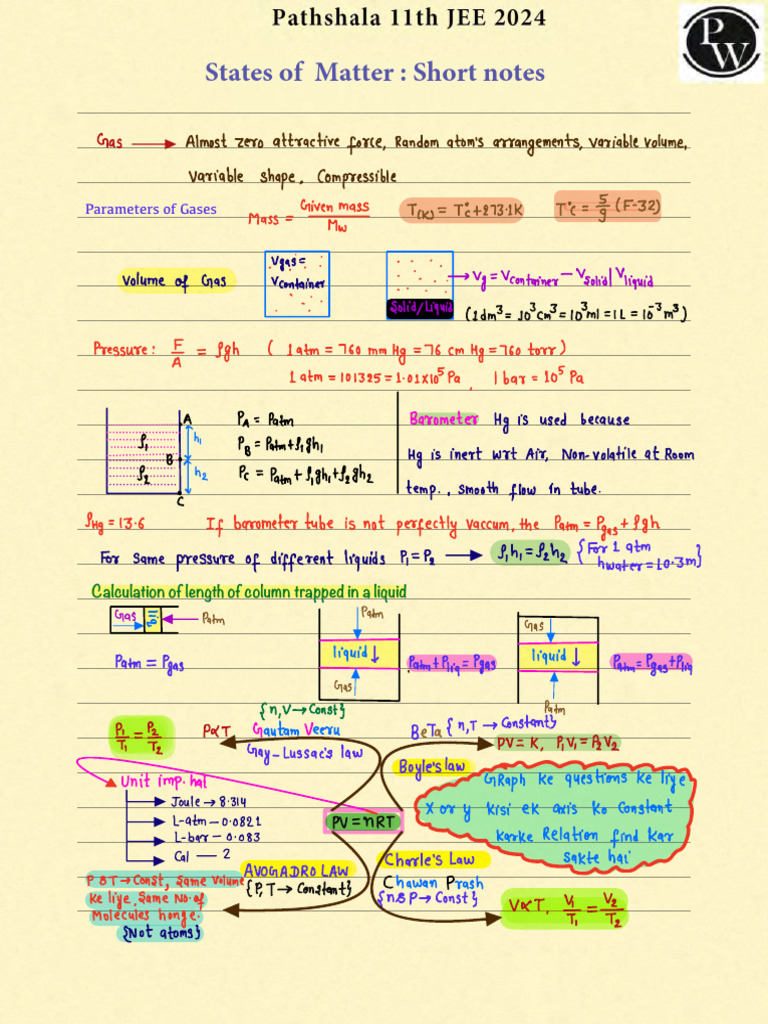 Pathshala 11th JEE 2024
PW
States of Matter : Short notes
Gas → Almost zero attractive force, Random atom's arrangements, variable volume,
variable shape, Compressible
Parameters of Gases
Mass = Given mass / Mw
T(K) = T°C + 273.1K
T°C = 5/9 (F-32)
Volume of Gas
Vgas = Vcontainer
Solid/Liquid
→ Vg = Vcontainer - Vsolid/Vliquid
(1dm³ = 10³cm³ = 10³ml = 1L = 10⁻³m³)
Pressure: F/A = ρgh (1 atm = 760 mm Hg = 76 cm Hg = 760 torr)
1 atm = 101325 = 1.01×10⁵ Pa, 1 bar = 10⁵ Pa
ρ1
ρ2
A
B
C
h1
h2
PA = Patm
PB = Patm + ρ1gh1
PC = Patm + ρ1gh1 + ρ2gh2
Barometer Hg is used because
Hg is inert wrt Air, Non-volatile at Room
temp., smooth flow in tube.
ρHg = 13.6 If barometer tube is not perfectly vaccum, the Patm = Pgas + ρgh
For same pressure of different liquids P1 = P2 → ρ1h1 = ρ2h2 {For 1 atm
hwater = 10.3m}
Calculation of length of column trapped in a liquid
Gas liq Patm
Patm = Pgas
Patm
liquid ↓
Gas
Patm + Pliq = Pgas
Gas
liquid ↓
Patm
Patm = Pgas + Pliq
{n,V → Const}
P1/T1 = P2/T2
P∝T
Gautam Veeru
Gay-Lussac's law
BeTa {n, T → Constant}
PV = K, P1V1 = P2V2
Boyle's law
Unit imp. hai
Joule → 8.314
L-atm - 0.0821
L-bar - 0.083
Cal — 2
PV = nRT
GRaph ke questions ke liye
X or y kisi ek axis ko Constant
karke Relation find kar
sakte hai
AVOGADRO LAW
{P, T → Constant}
P & T → Const, Same Volume
ke liye, Same No. of
Molecules honge.
{Not atoms}
Charle's Law
Chawan Prash
{n & P → Const}
V∝T, V1/T1 = V2/T2